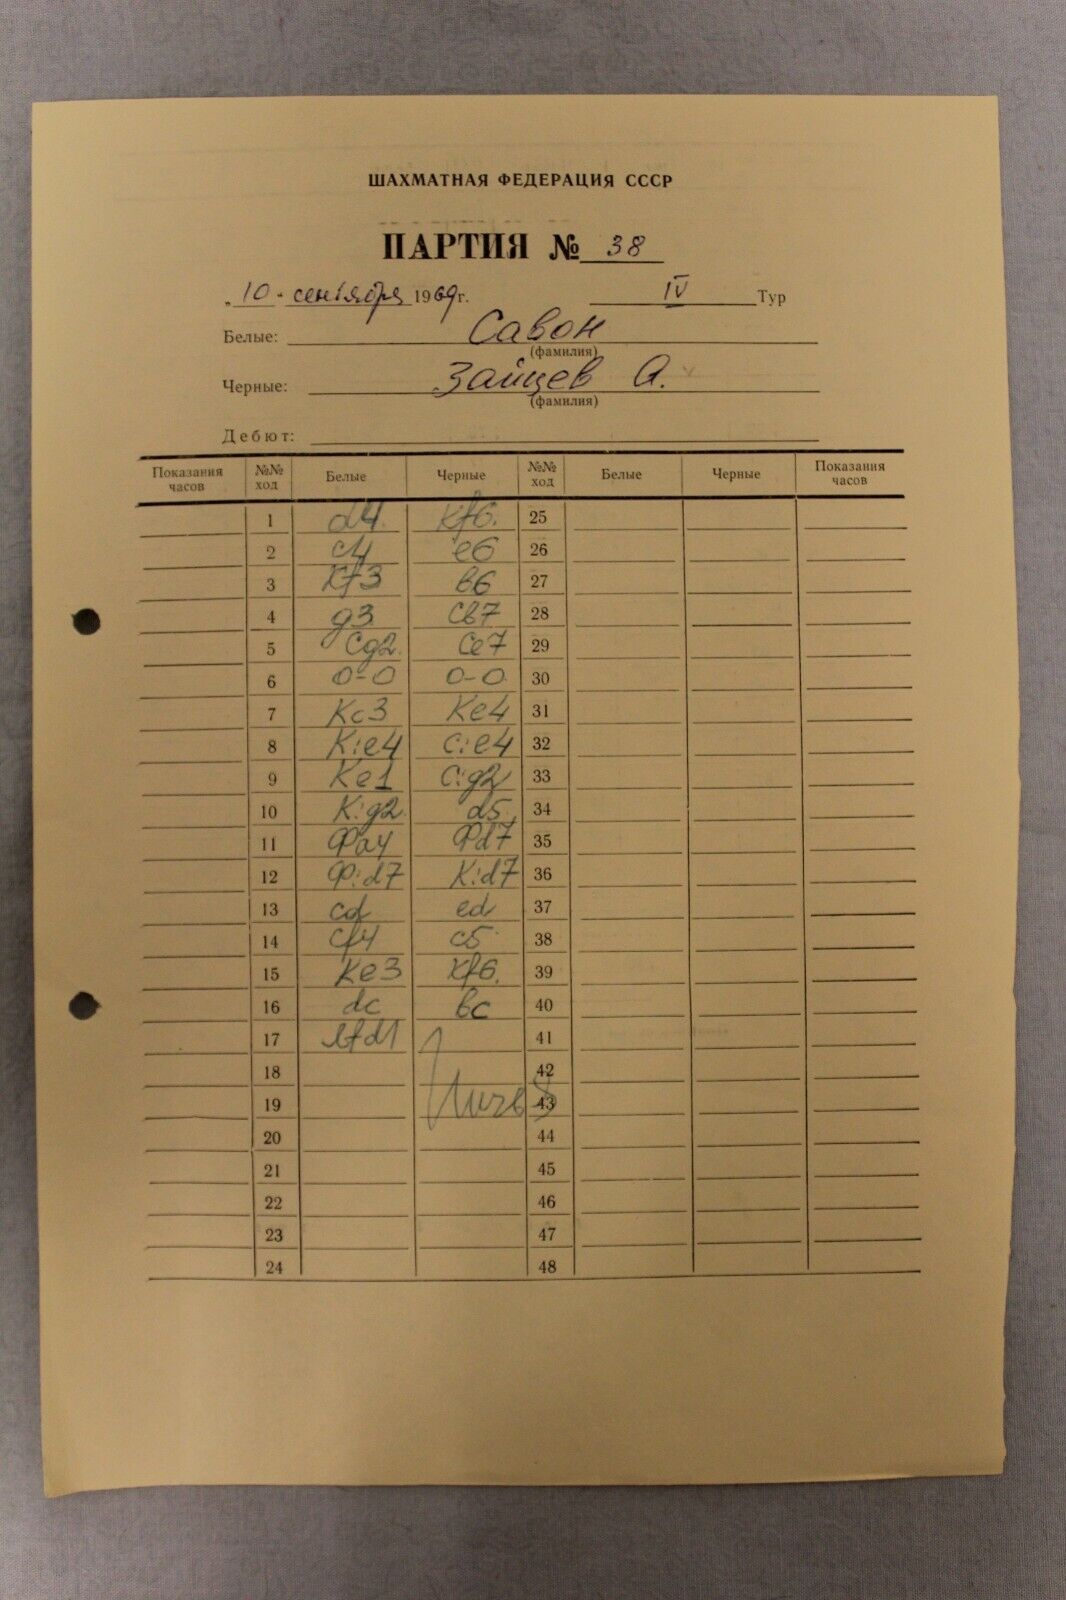 ШАХМАТНАЯ ФЕДЕРАЦИЯ СССР
ПАРТИЯ № 38
„10“ сентября 1969г. IV Тур
Белые: Савон
(фамилия)
Черные: Зайцев А.
(фамилия)
Дебют:
Показания часов №№ ход Белые Черные №№ ход Белые Черные Показания часов
1 d4. Kf6. 25
2 c4 e6 26
3 Kf3 в6 27
4 g3 Cв7 28
5 Cg2. Ce7 29
6 0-0 0-0. 30
7 Kc3 Ke4 31
8 K:e4 C:e4 32
9 Ke1 C:g2 33
10 K:g2. d5. 34
11 Фa4 Фd7 35
12 Ф:d7 K:d7 36
13 cd ed 37
14 Cf4 c5 38
15 Ke3 Kf6. 39
16 dc вc 40
17 Лfd1 41
18 42
19 Ничья 43
20 44
21 45
22 46
23 47
24 48